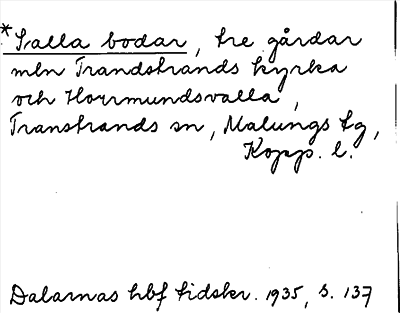 *Salla bodar, tre gårdar
mln Trandstrands kyrka
och Horrmundsvalla,
Transtrands sn, Malungs tg,
Kopp. l.
Dalarnas hbf tidskr. 1935, s. 137